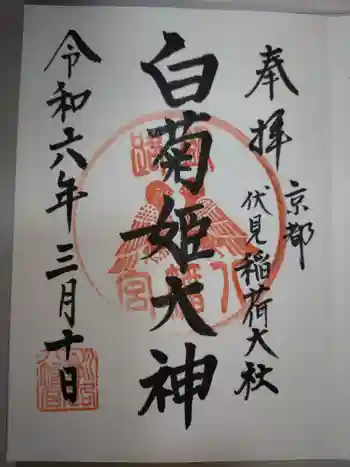 奉拝
京都
伏見稲荷大社
白菊姫大神
令和六年三月十日
八幡宮